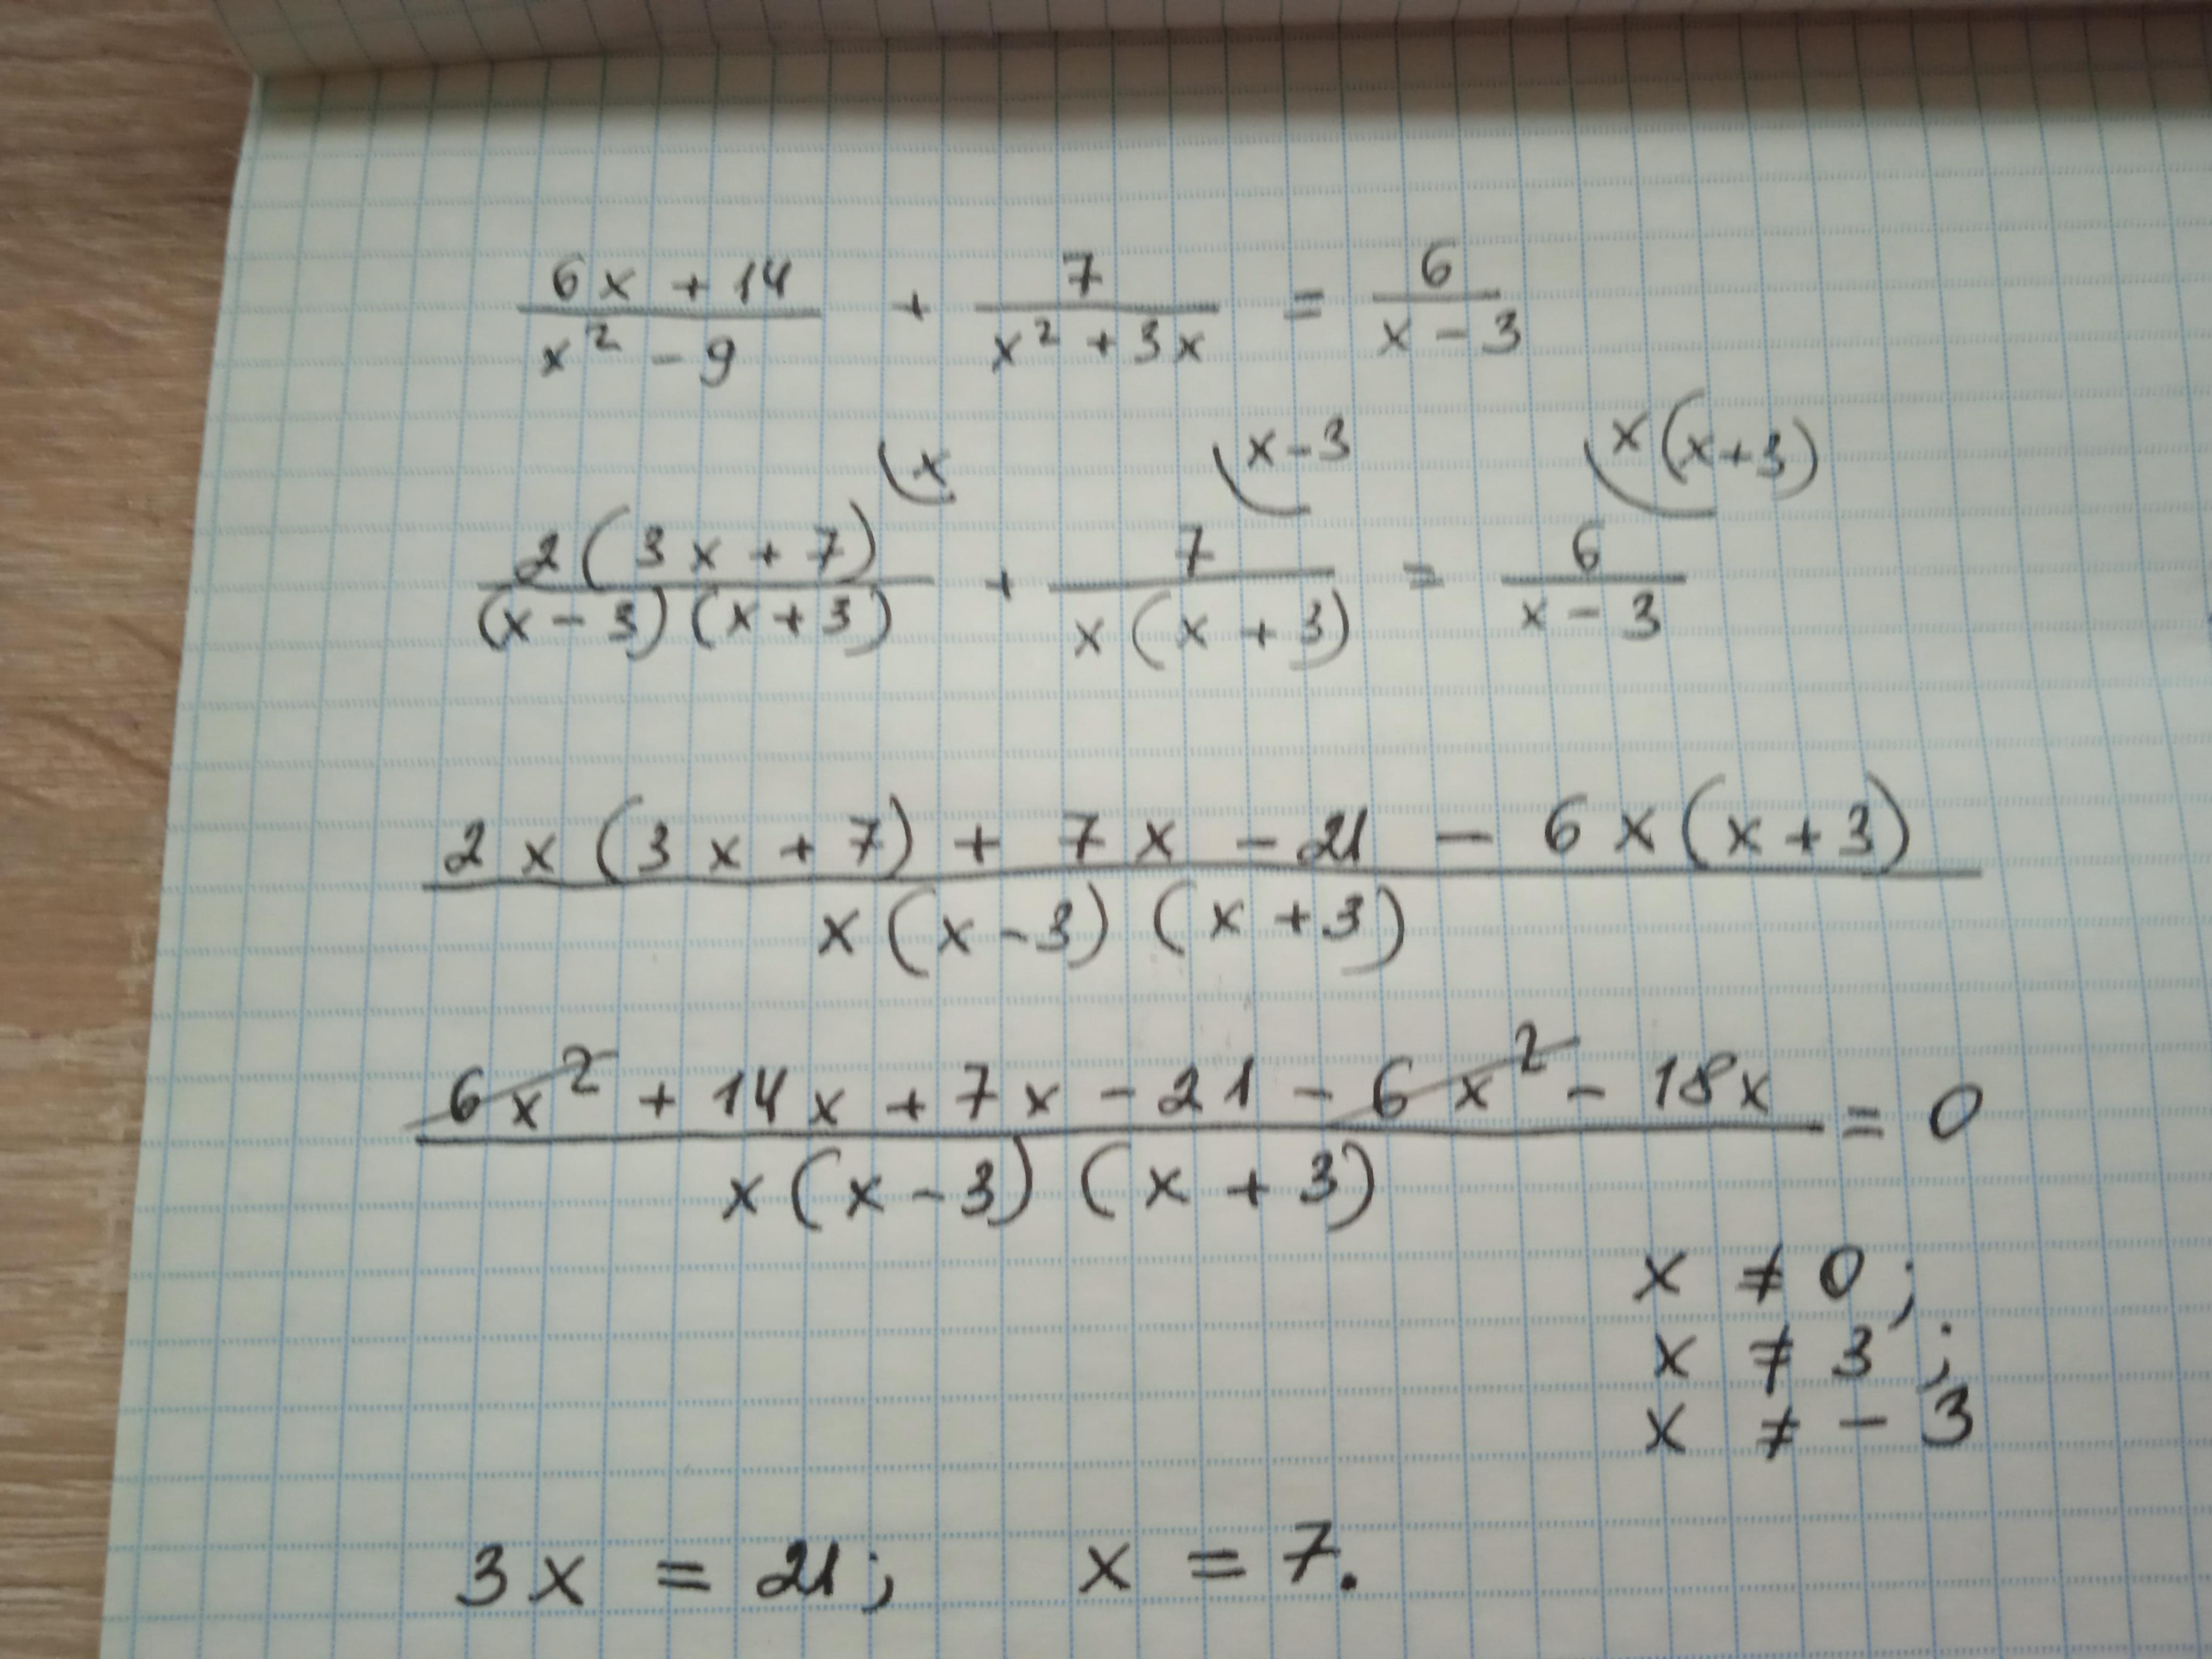 (6x + 14)/(x² - 9) + 7/(x² + 3x) = 6/(x - 3)
x x-3 x(x+3)
2(3x + 7)/((x - 3)(x + 3)) + 7/(x(x + 3)) = 6/(x - 3)
(2x(3x + 7) + 7x - 21 - 6x(x + 3))/(x(x - 3)(x + 3))
(6x² + 14x + 7x - 21 - 6x² - 18x)/(x(x - 3)(x + 3)) = 0
x ≠ 0;
x ≠ 3;
x ≠ - 3
3x = 21; x = 7.